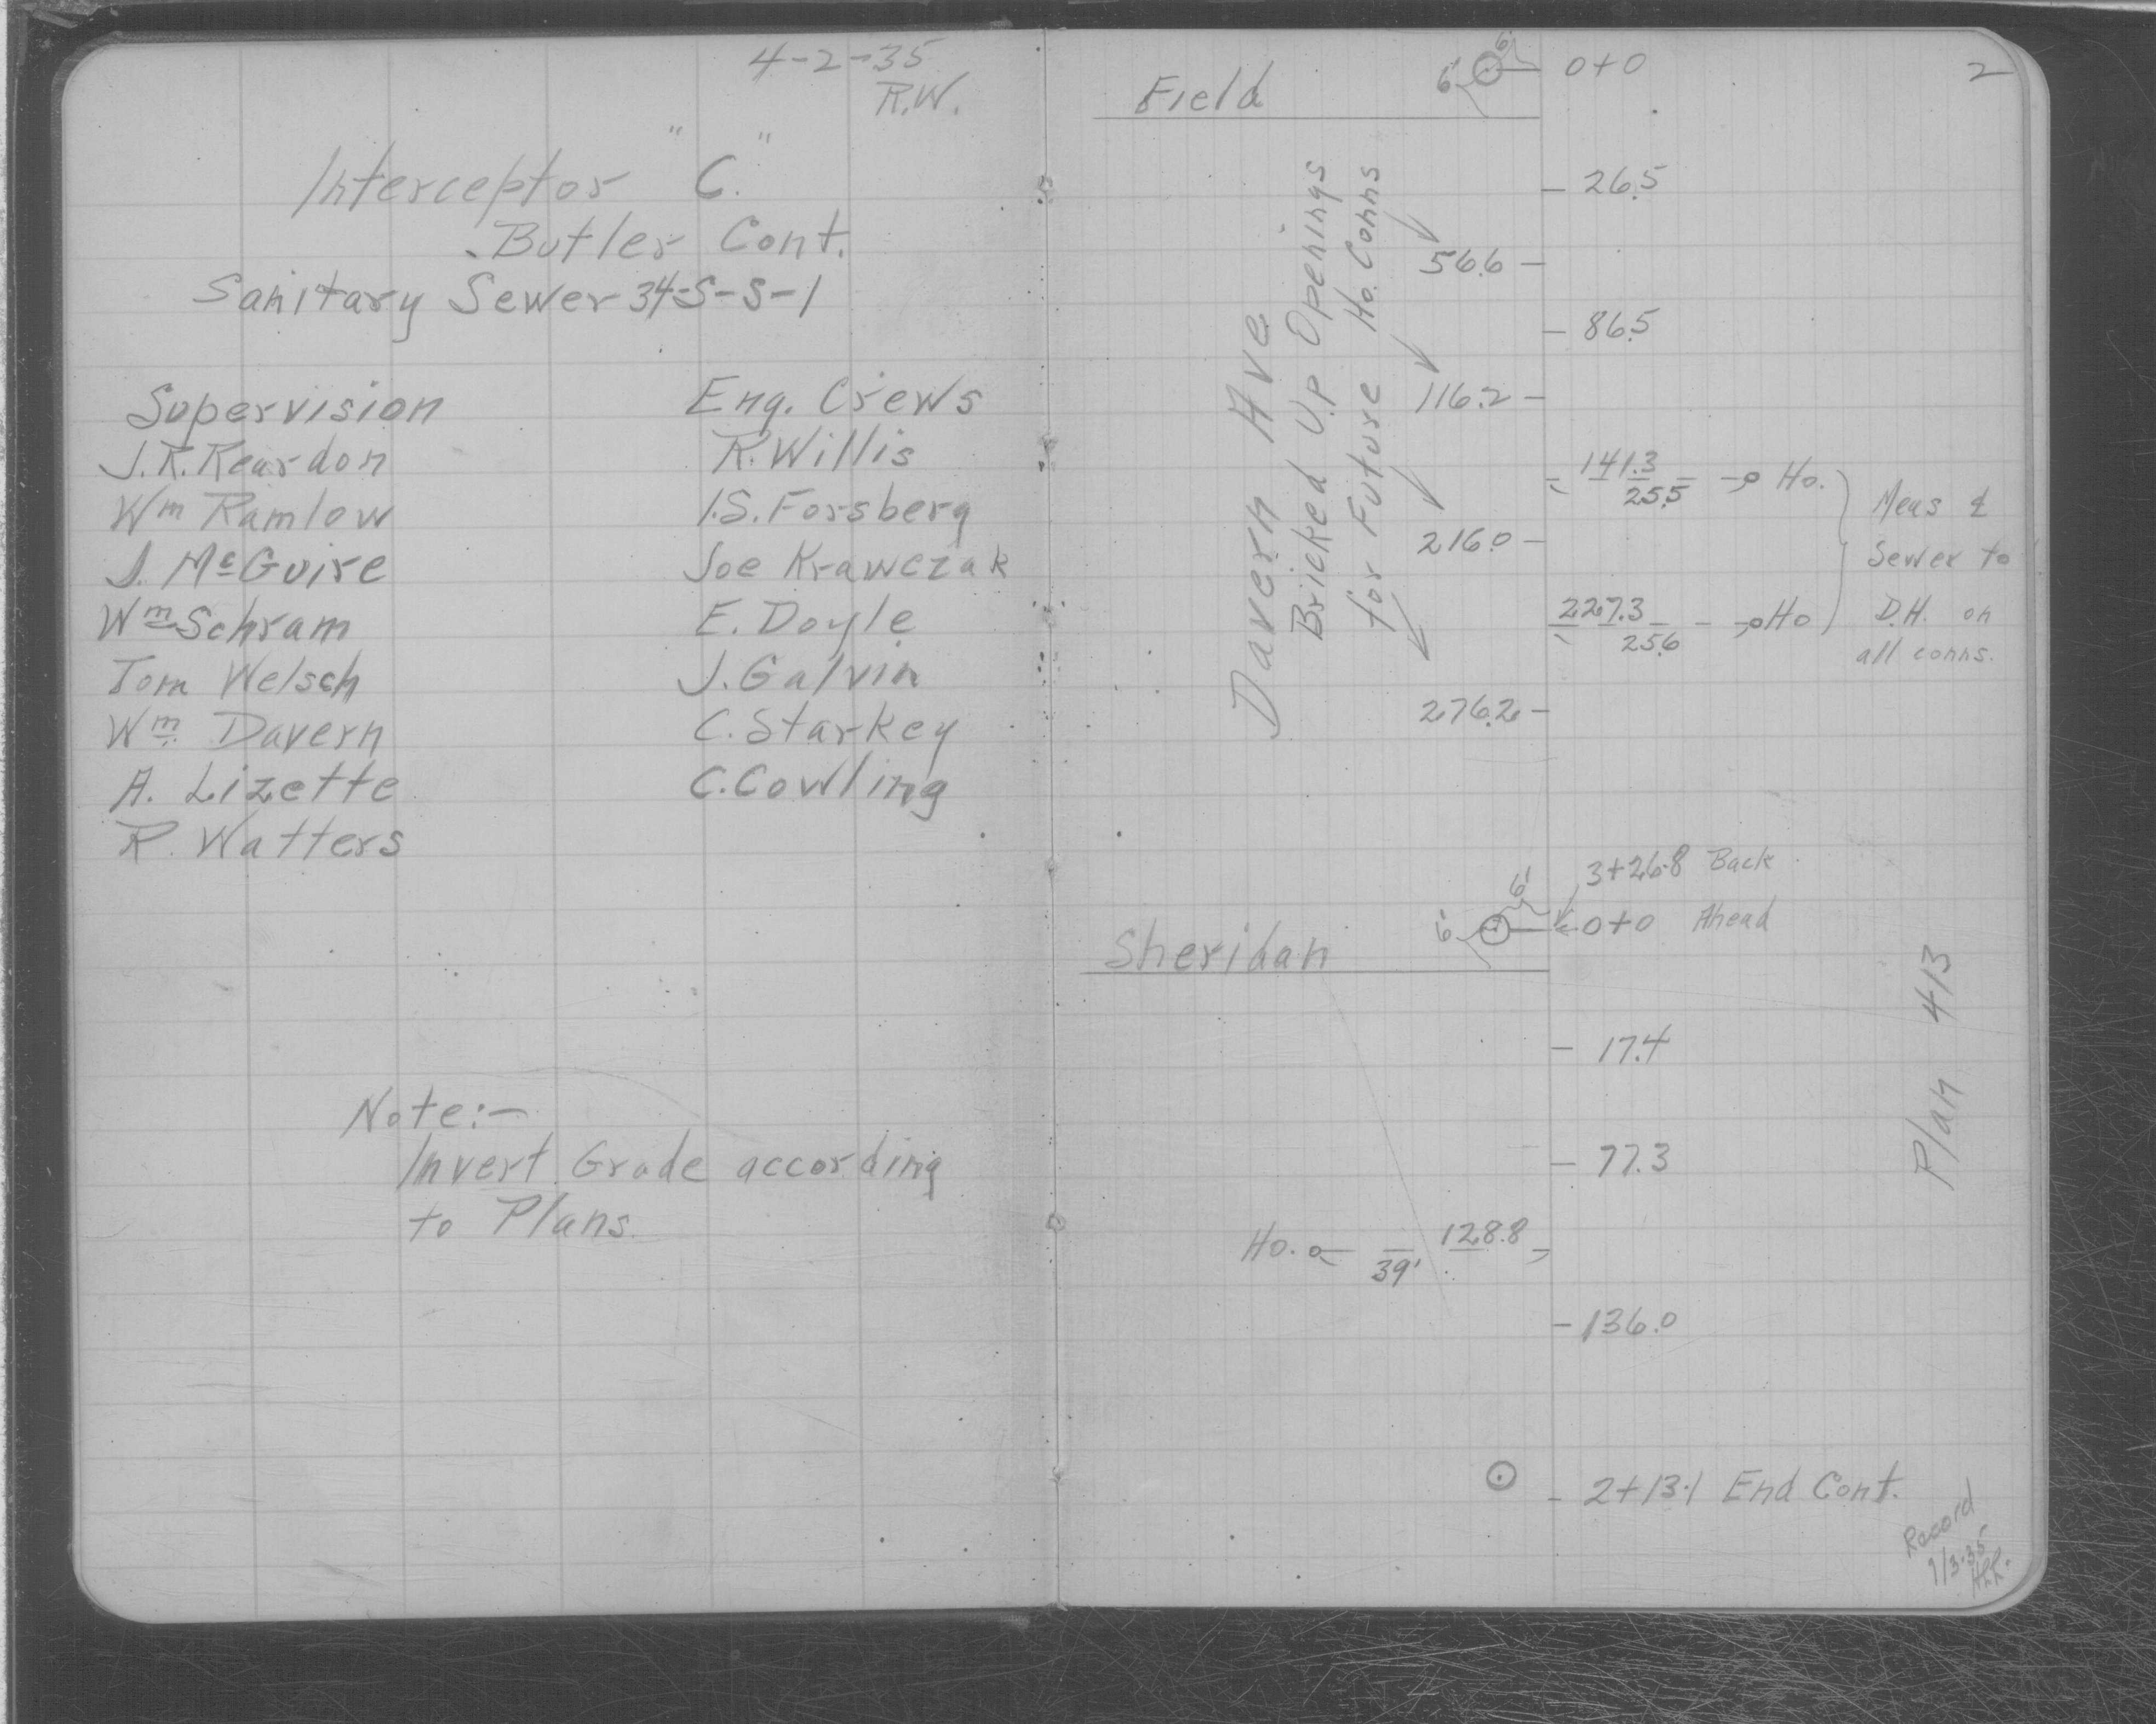 4-2-35
R.W.
Interceptor "C."
Butler Cont.
Sanitary Sewer 34-S-S-1
Supervision
J.R. Reardon
Wm Ramlow
J. McGuire
Wm Schram
Tom Welsch
Wm. Davern
A. Lizette
R. Watters
Eng. Crews
R. Willis
I.S. Forsberg
Joe Krawczak
E. Doyle
J. Galvin
C. Starkey
C. Cowling
Note:-
Invert Grade according
to Plans.
2
Field
6' 6' 0+0
26.5
56.6
86.5
116.2
141.3
25.5 Ho.
216.0
227.3
25.6 Ho
276.2
Davern Ave
Bricked Up Openings
for Future Ho. Conns
Meas ¢
Sewer to
D.H. on
all conns.
3+26.8 Back
6' 6' 0+0 Ahead
Sheridan
17.4
77.3
Ho. 39' 128.8
136.0
2+13.1 End Cont.
Plan 413
Record